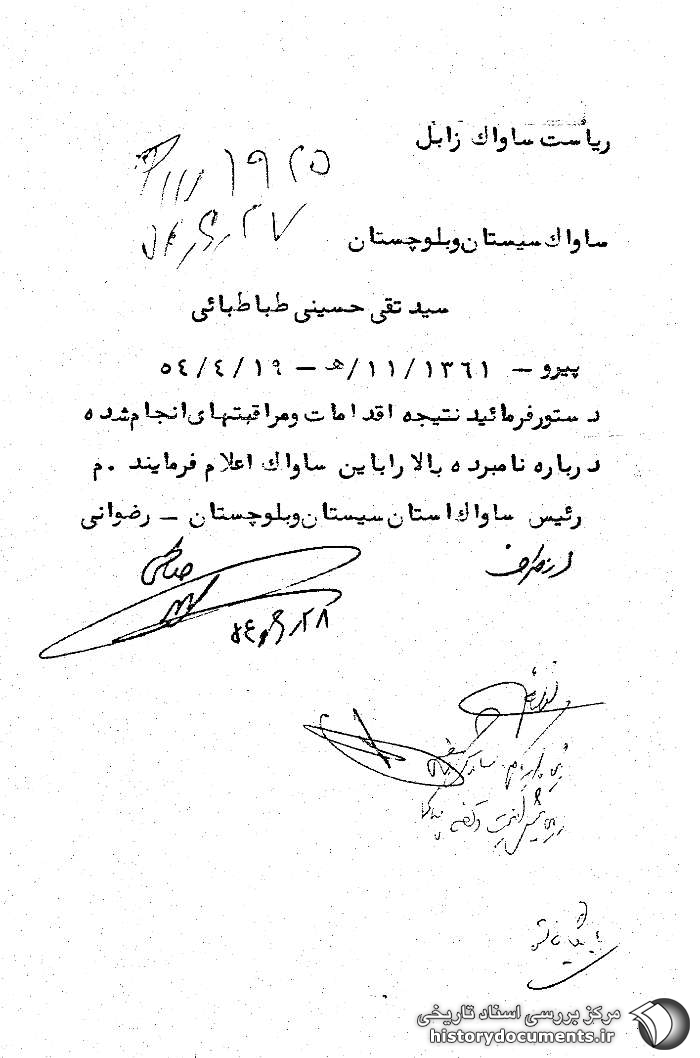 ریاست ساواک زابل
۱۹۲۵/۱۱ﻫ
۲۷ر۶ر۵۴
ساواک سیستان و بلوچستان
سید تقی حسینی طباطبائی
پیرو – ۱۱/۱۳۶۱/ﻫ – ۵۴/۴/۱۹
دستور فرمائید نتیجه اقدامات و مراقبتهای انجام شده
درباره نامبرده بالا را باین ساواک اعلام فرمایند . م
رئیس ساواک استان سیستان و بلوچستان – رضوانی
از طرف
۲۸ر۶ر۵۴
بایگانی شود
مرکز بررسی اسناد تاریخی
historydocuments.ir